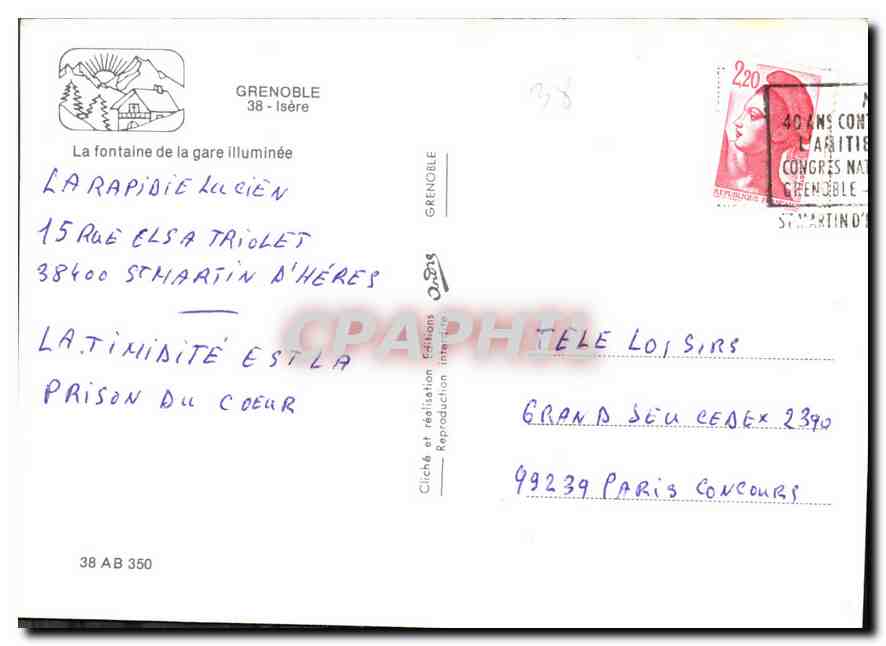 GRENOBLE
38 - Isère
La fontaine de la gare illuminée
LARAPIDIE LUCIEN
15 RUE ELSA TRIOLET
38400 ST MARTIN D'HÉRES
LA TIMIDITÉ EST LA
PRISON DU COEUR
38 AB 350
GRENOBLE
andré
Cliché et réalisation Editions
Reproduction interdite
CPAPHIL
38
2,20
REPUBLIQUE
40 ANS CONT
L'AMITIE
CONGRES NAT
GRENOBLE -
ST MARTIN D'
TÉLÉ LOISIRS
GRAND SEU CEDEX 2390
99239 PARIS CONCOURS